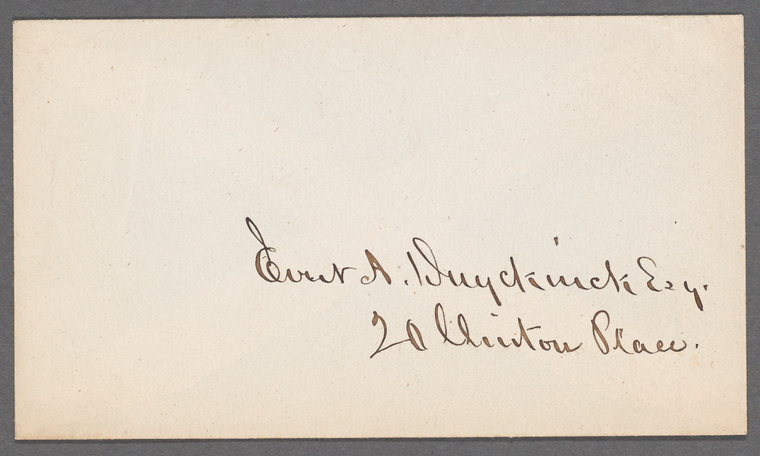 Evert A. Duyckinck Esq.
20 Clinton Place.